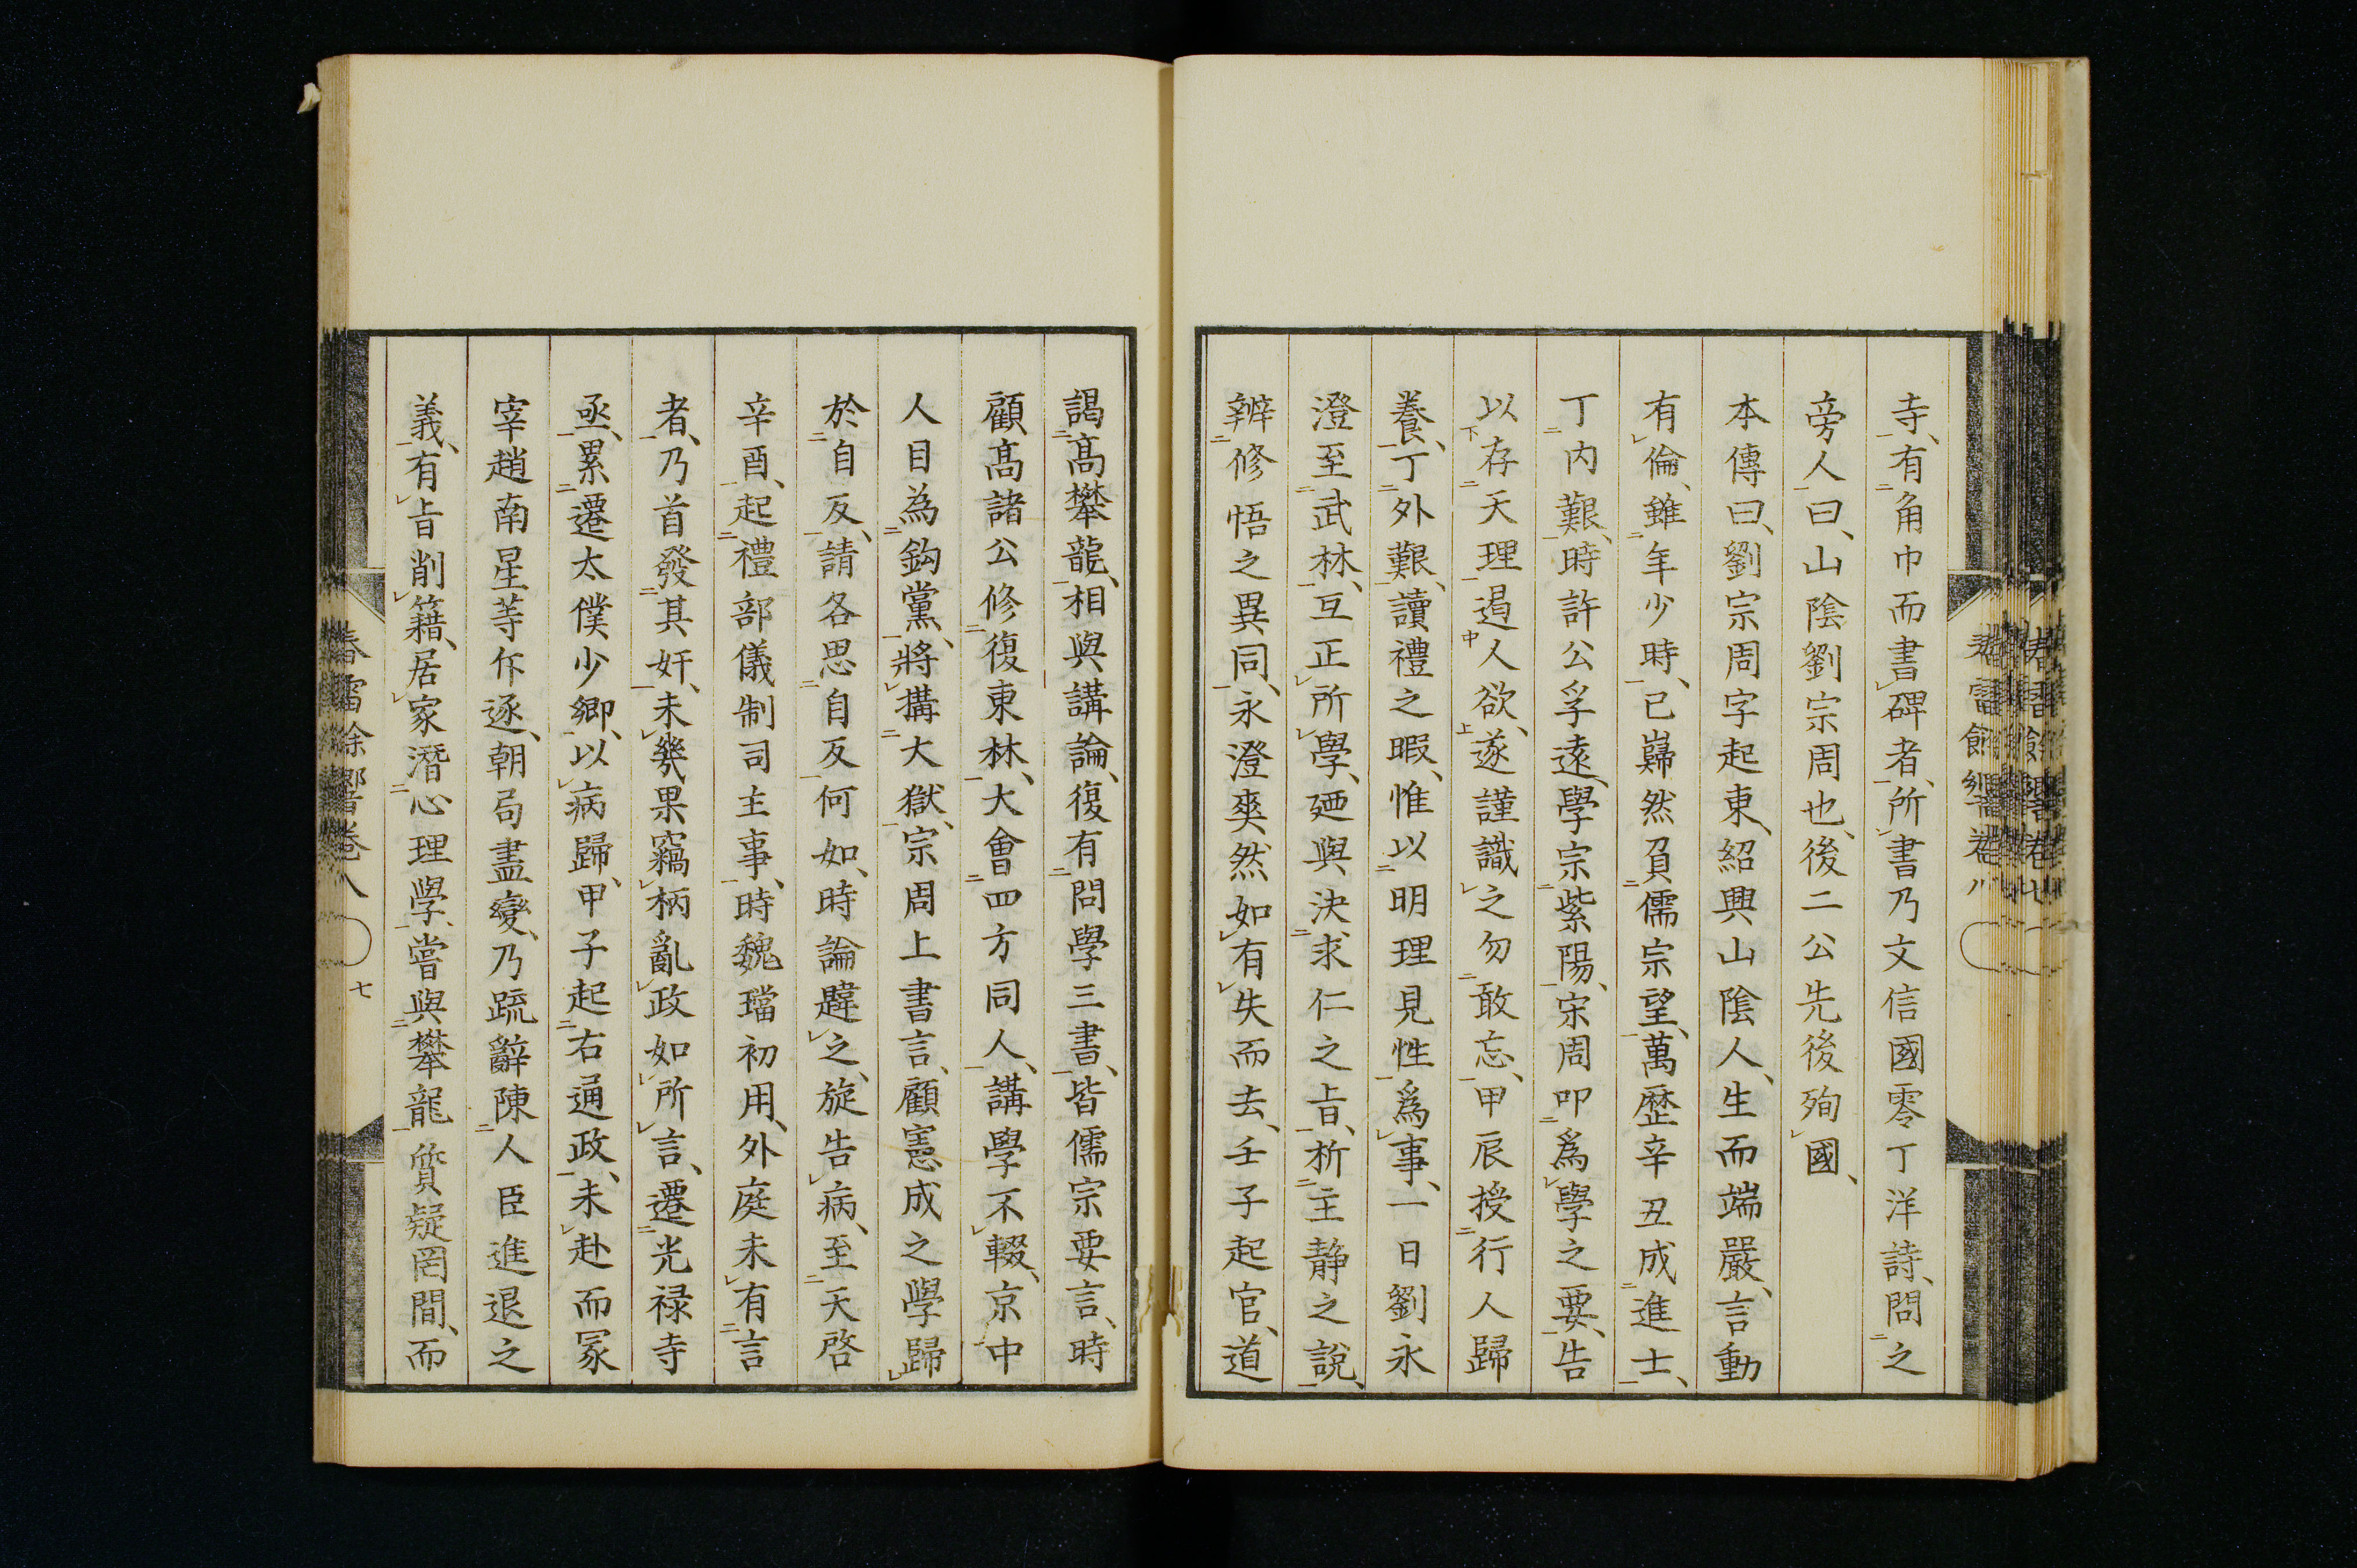 寺、有角巾而書碑者、所書乃文信國零丁洋詩、問之
旁人曰、山陰劉宗周也、後二公先後殉國、
本傳曰、劉宗周字起東、紹興山陰人、生而端嚴、言動
有倫、雖年少時、已巋然負儒宗望、萬歷辛丑成進士、
丁内艱、時許公孚遠、學宗紫陽、宋周叩爲學之要、告
以存天理遏人欲、遂謹識之勿敢忘、甲辰授行人歸
養、丁外艱、讀禮之暇、惟以明理見性爲事、一日劉永
澄至武林、互正所學、廼與決求仁之旨、析主静之說、
辨修悟之異同、永澄爽然如有失而去、壬子起官、道
謁髙攀龍、相與講論、復有問學三書、皆儒宗要言、時
顧髙諸公修復東林、大會四方同人、講學不輟、京中
人目為鈎黨、將搆大獄、宗周上書言、顧憲成之學歸
於自反、請各思自反何如、時論韙之、旋告病、至天啓
辛酉、起禮部儀制司主事、時魏璫初用、外庭未有言
者、乃首發其奸、未幾果竊柄亂政如所言、遷光禄寺
丞、累遷太僕少卿、以病歸、甲子起右通政、未赴而冢
宰趙南星等斥逐、朝局盡變、乃疏辭陳人臣進退之
義、有旨削籍、居家潛心理學、嘗與攀龍質疑罔間、而
春雷餘響卷八
七